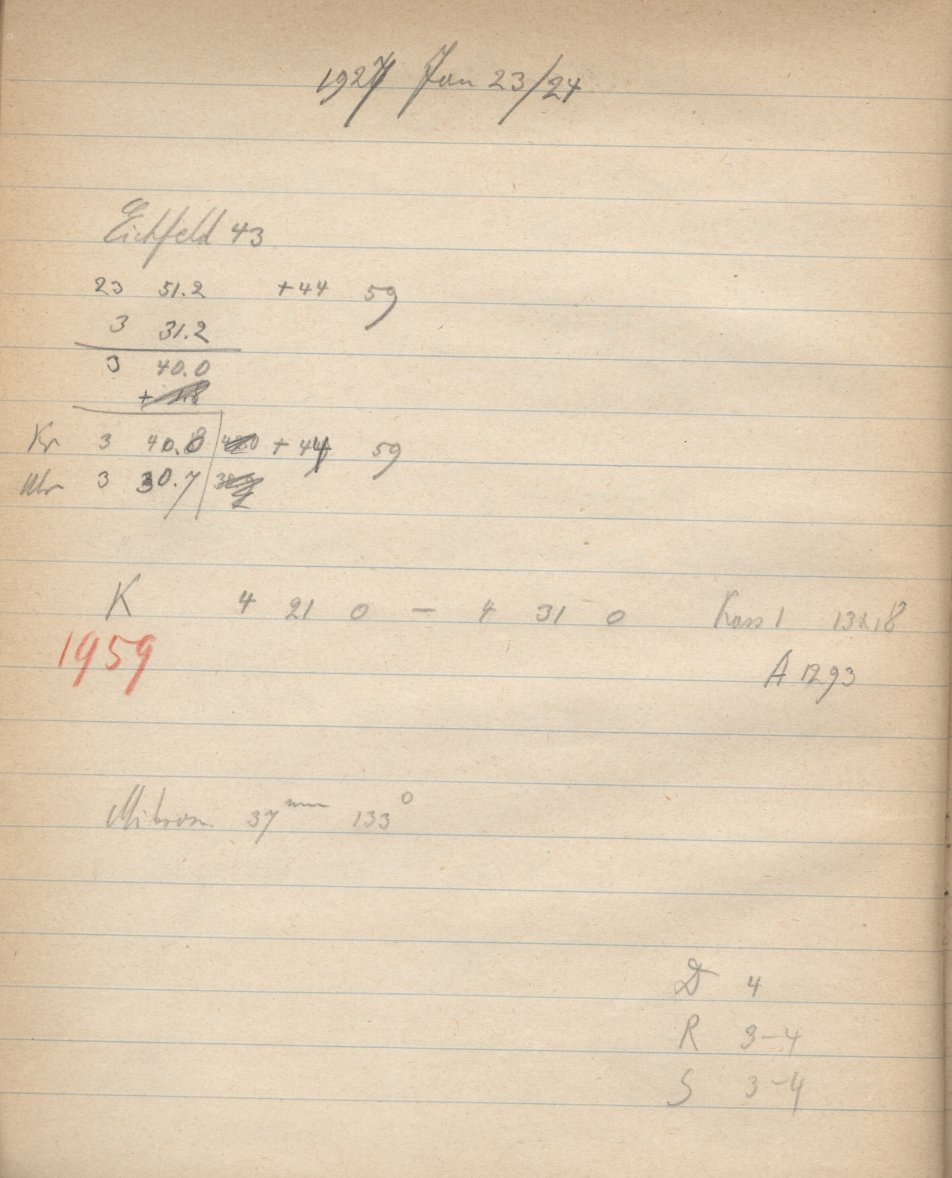 1927 Jan 23/24
Eichfeld 43
23 51.2 +44 59
3 31.2
3 40.0
+
Kr 3 40.8 +44 59
Uhr 3 30.7
K 4 21 0 — 4 31 0 Kass 1 13x18
1959 A 1293
Mikrom. 37mm 133°
D 4
R 3-4
S 3-4